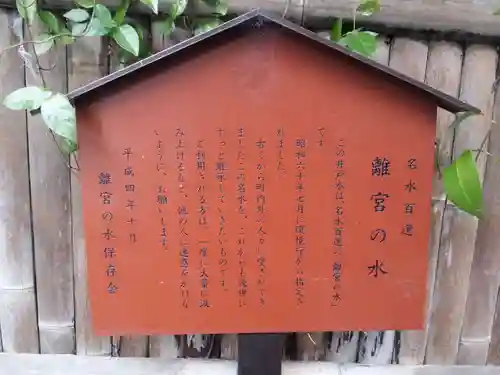 名水百選
離宮の水
この井戸水は、名水百選の「離宮の水」
です。
昭和六十年七月に環境庁から指定さ
れました。
古くから町内の人々に愛されてき
ましたこの名水を、これからも大切に
ずっと維持していきたいものです。
ご利用される方は、一度に大量に汲
み上げるなど、他の人に迷惑をかけな
いように、お願いします。
平成四年十月
離宮の水保存会